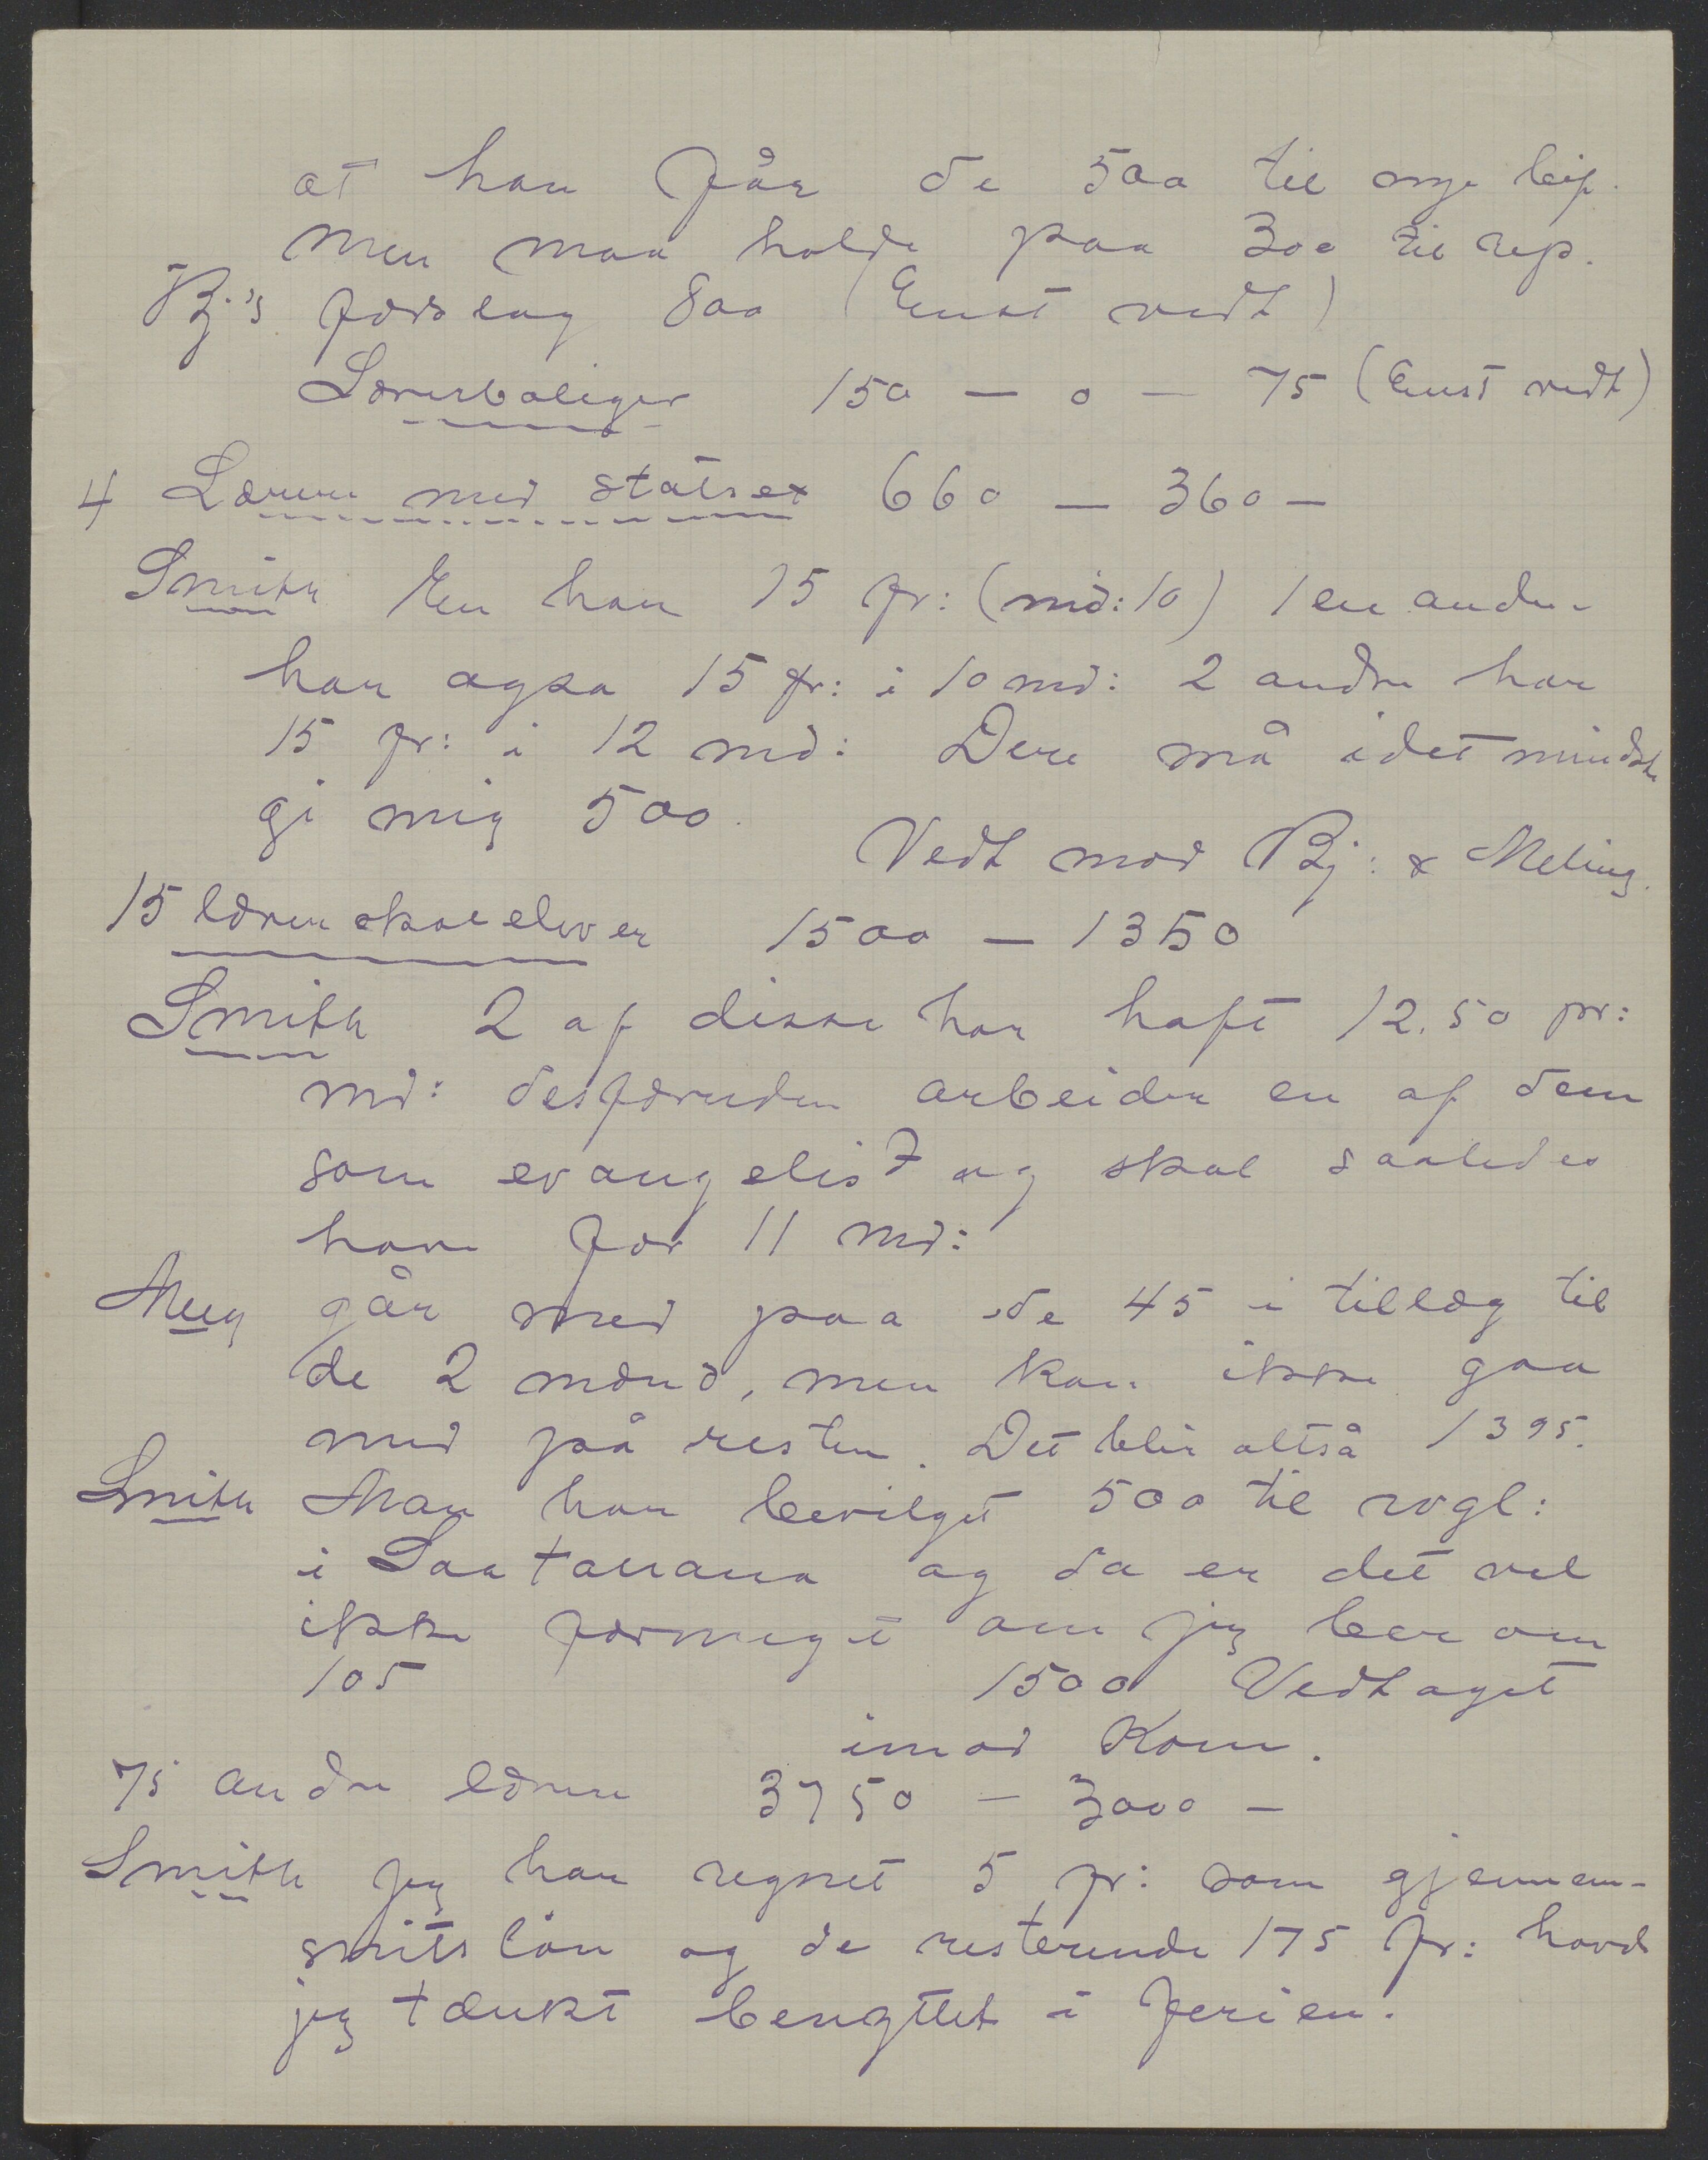 at han får de 500 til nye
men maa holde paa 300 til rep.
Bj's forslag 800 (Enst vedt)
Lærerboliger 150 — 0 — 75 (Enst vedt)
4 Lærere med statsex 660 — 360 —
Smith En har 15 fr: (md: 10) 1 en anden
har ogsa 15 fr: i 10 md: 2 andre har
15 fr: i 12 md: Dere må idet mindste
gi mig 500.
Vedt mod Bj: & Meling.
15 lærerskoleelever 1500 — 1350
Smith 2 af disse har haft 12.50 pr:
md: desforuden arbeider en af dem
som evangelist og skal saaledes
have for 11 md:
Meng går med paa de 45 i tillæg til
de 2 mænd, men kan ikke gaa
med på resten. Det blir altså 1395.
Smith Man har bevilget 500 til
i Soatanana og da er det vel
ikke formeget om jeg beer om
105 1500 Vedtaget
imod Kom.
75 andre lærere 3750 — 3000 —
Smith jeg har regnet 5 fr: som gjennem-
snitslån og de resterende 175 fr: havde
jeg tænkt benyttet i ferien.